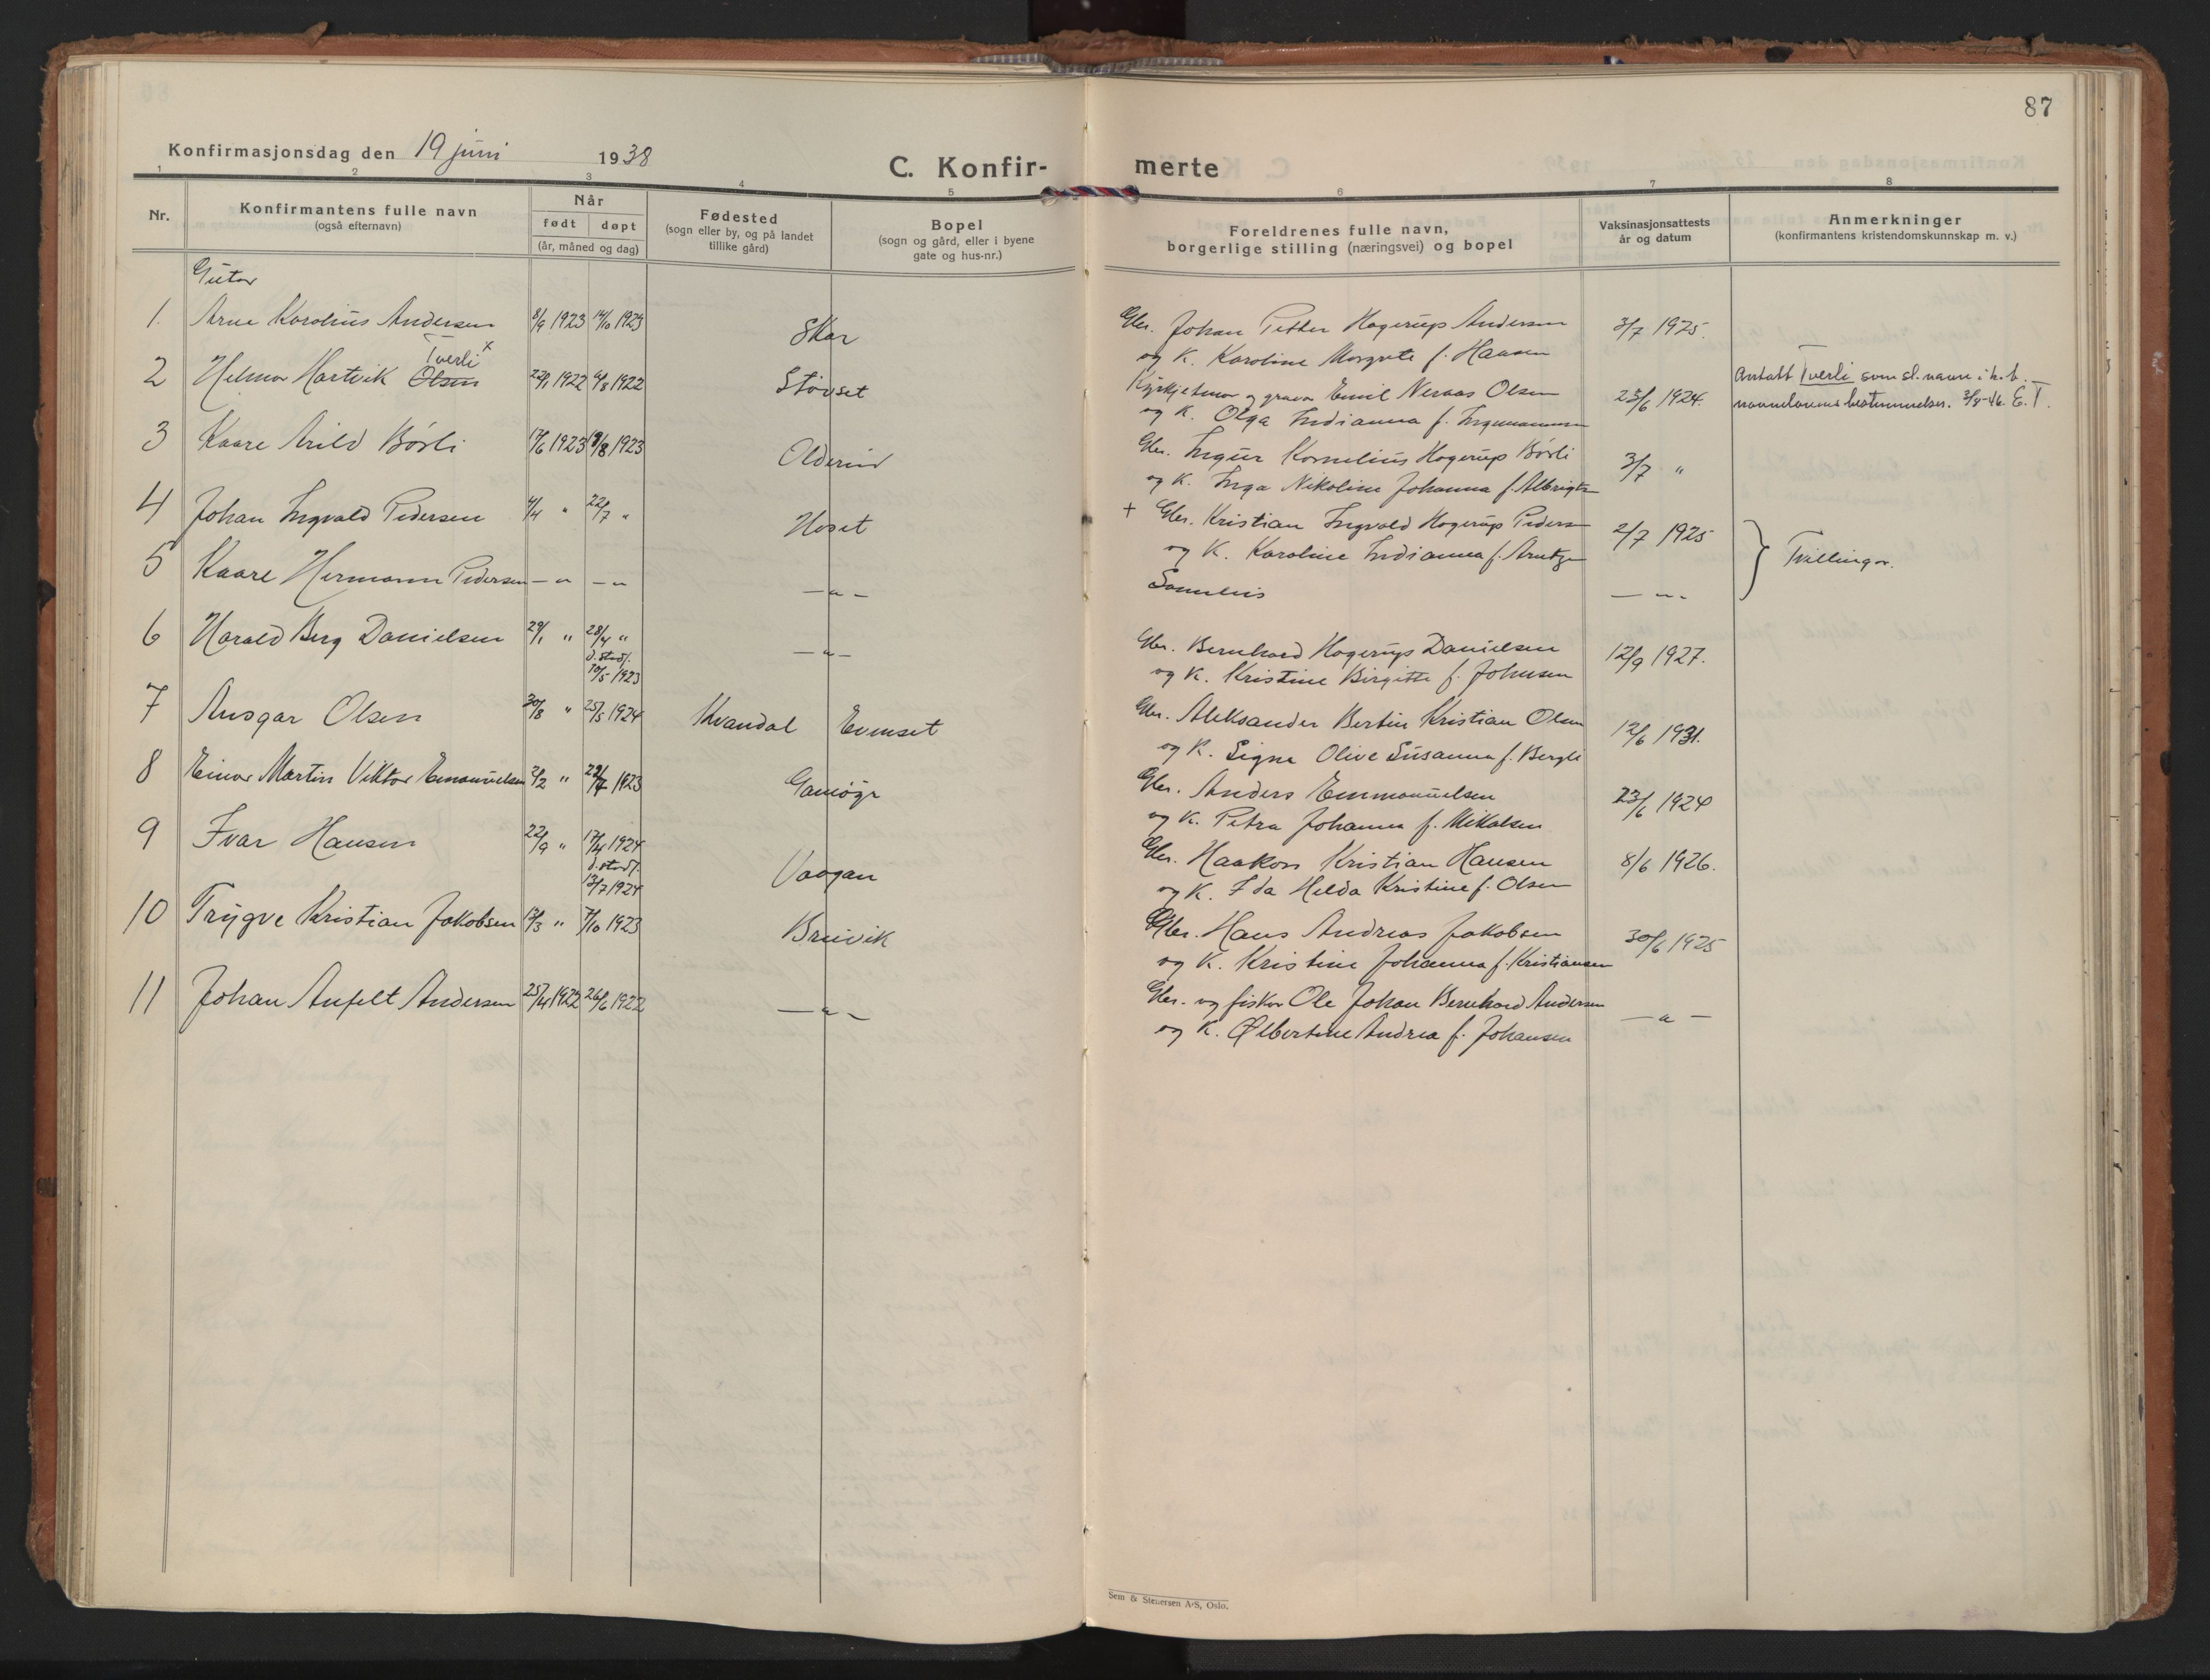 87
Konfirmasjonsdag den 19 juni 1938
C. Konfir- merte
1 2 3 4 5 6 7 8
Nr.
Konfirmantens fulle navn
(også efternavn)
Når
født døpt
(år, måned og dag)
Fødested
(sogn eller by, og på landet
tillike gård)
Bopel
(sogn og gård, eller i byene
gate og hus-nr.)
Foreldrenes fulle navn,
borgerlige stilling (næringsvei) og bopel
Vaksinasjonsattests
år og datum
Anmerkninger
(konfirmantens kristendomskunnskap m. v.)
Gutar
1. Arne Karolius Andersen 8/9 1923 14/10 1923 Skar Gbr. Johan Petter Hagerup Andersen 3/7 1925.
og K. Karoline Margrete f. Hansen
Tverli x
2 Helmar Hartvik Olsen 22/1 1922 6/8 1922 Støvset Kyrkjetenar og gravar Emil Neraas Olsen 23/6 1924. Antatt Tverli som sl.navn i h.t.
og K. Olga Indianna f. Ingemannsen navnelovens bestemmelser. 3/8-46. E.T.
3 Kaare Arild Børli 17/6 1923 19/8 1923 Oldereid Gbr. Ingur Kornelius Hagerup Børli 3/7 "
og K. Inga Nikoline Johanna f. Albrigts
4 Johan Ingvald Pedersen 4/4 " 22/7 " Hoset + Gbr. Kristian Ingvald Hagerup Peders 2/7 1925 } Tvillingar.
og K. Karoline Indianna f. Arntzen
5 Kaare Hermann Pedersen — " — " — " — Samleis — " —
6 Harald Berg Danielsen 29/1 " 28/4 " — " — Gbr. Bernhard Hagerup Danielsen 12/9 1927.
d. stadf. 10/5 1923 og K. Kristine Birgitte f. Johnsen
7 Ansgar Olsen 30/8 " 25/5 1924 Kvandal Evenset Gbr. Aleksander Bertin Kristian Olsen 12/6 1931.
og K. Signe Olive Susanna f. Bergli
8 Einar Martin Viktor Emanuelsen 2/2 " 22/7 1923 Gamøyr Gbr. Anders Emmanuelsen 23/6 1924
og K. Petra Johanna f. Mikalsen
9 Ivar Hansen 22/9 " 17/4 1924 Vaagan Gbr. Haakon Kristian Hansen 8/6 1926.
d. stadf. 13/7 1924 og K. Ida Helda Kristine f. Olsen
10 Trygve Kristian Jakobsen 13/3 " 7/10 1923 Breivik Gbr. Hans Andreas Jakobsen 30/6 1925
og K. Kristine Johanna f. Kristiansen
11 Johan Anfelt Andersen 25/4 1922 26/6 1922 — " — Gbr. og fiskar Ole Johan Bernhard Andersen — " —
og K. Olbertine Andrea f. Johansen
Sem & Stenersen A/S, Oslo.